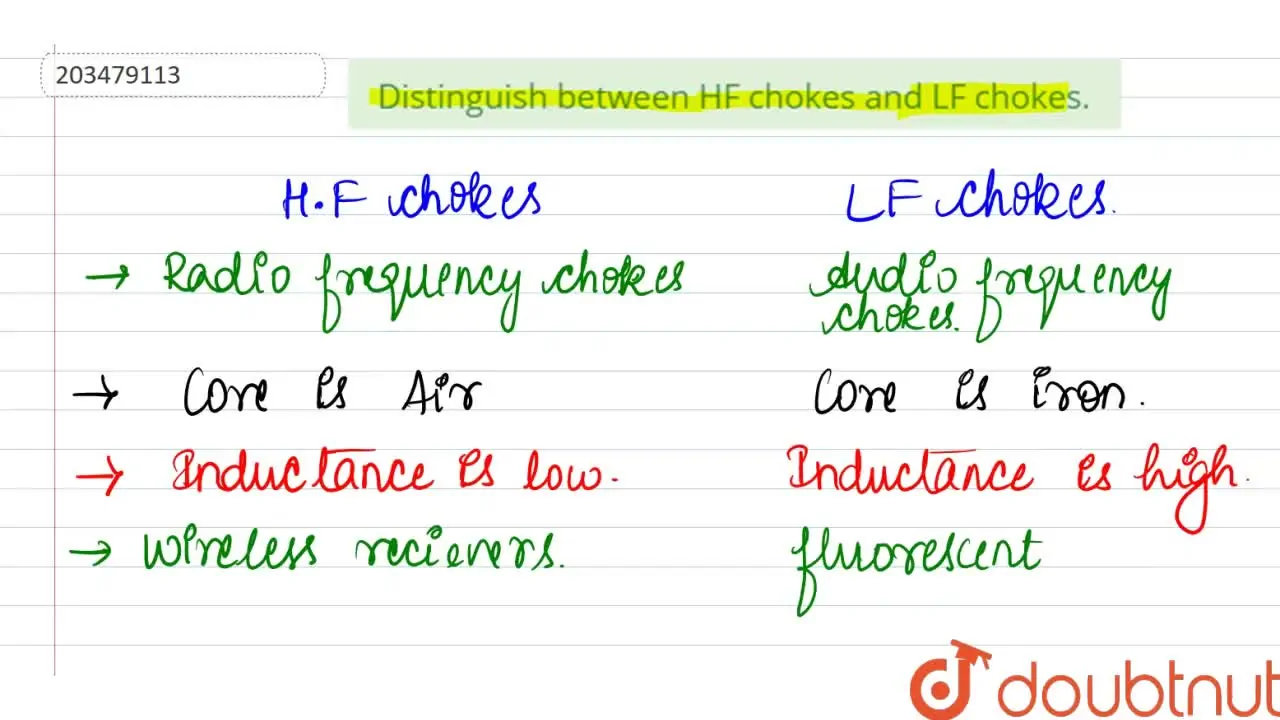 203479113
Distinguish between HF chokes and LF chokes.
H.F chokes LF chokes.
→ Radio frequency chokes Audio frequency
chokes.
→ Core is Air Core is iron.
→ Inductance is low. Inductance is high.
→ wireless recievers. fluorescent
doubtnut